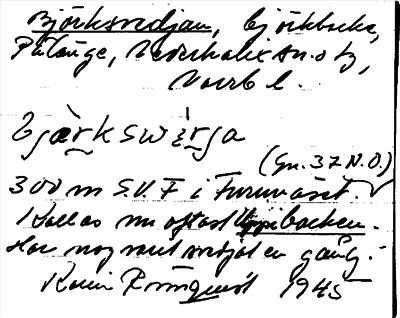 Björksvedjan, björkbacke,
Pålänge, Nederkalix sn. o tg,
Norrb. l.
bjærkswèrja
(Gn. 37 N.O.)
300 m S.V. F i Furunäset.
Kallas nu oftast backen.
Har nog varit svedjat en gång.
Karin Rönnquist 1945